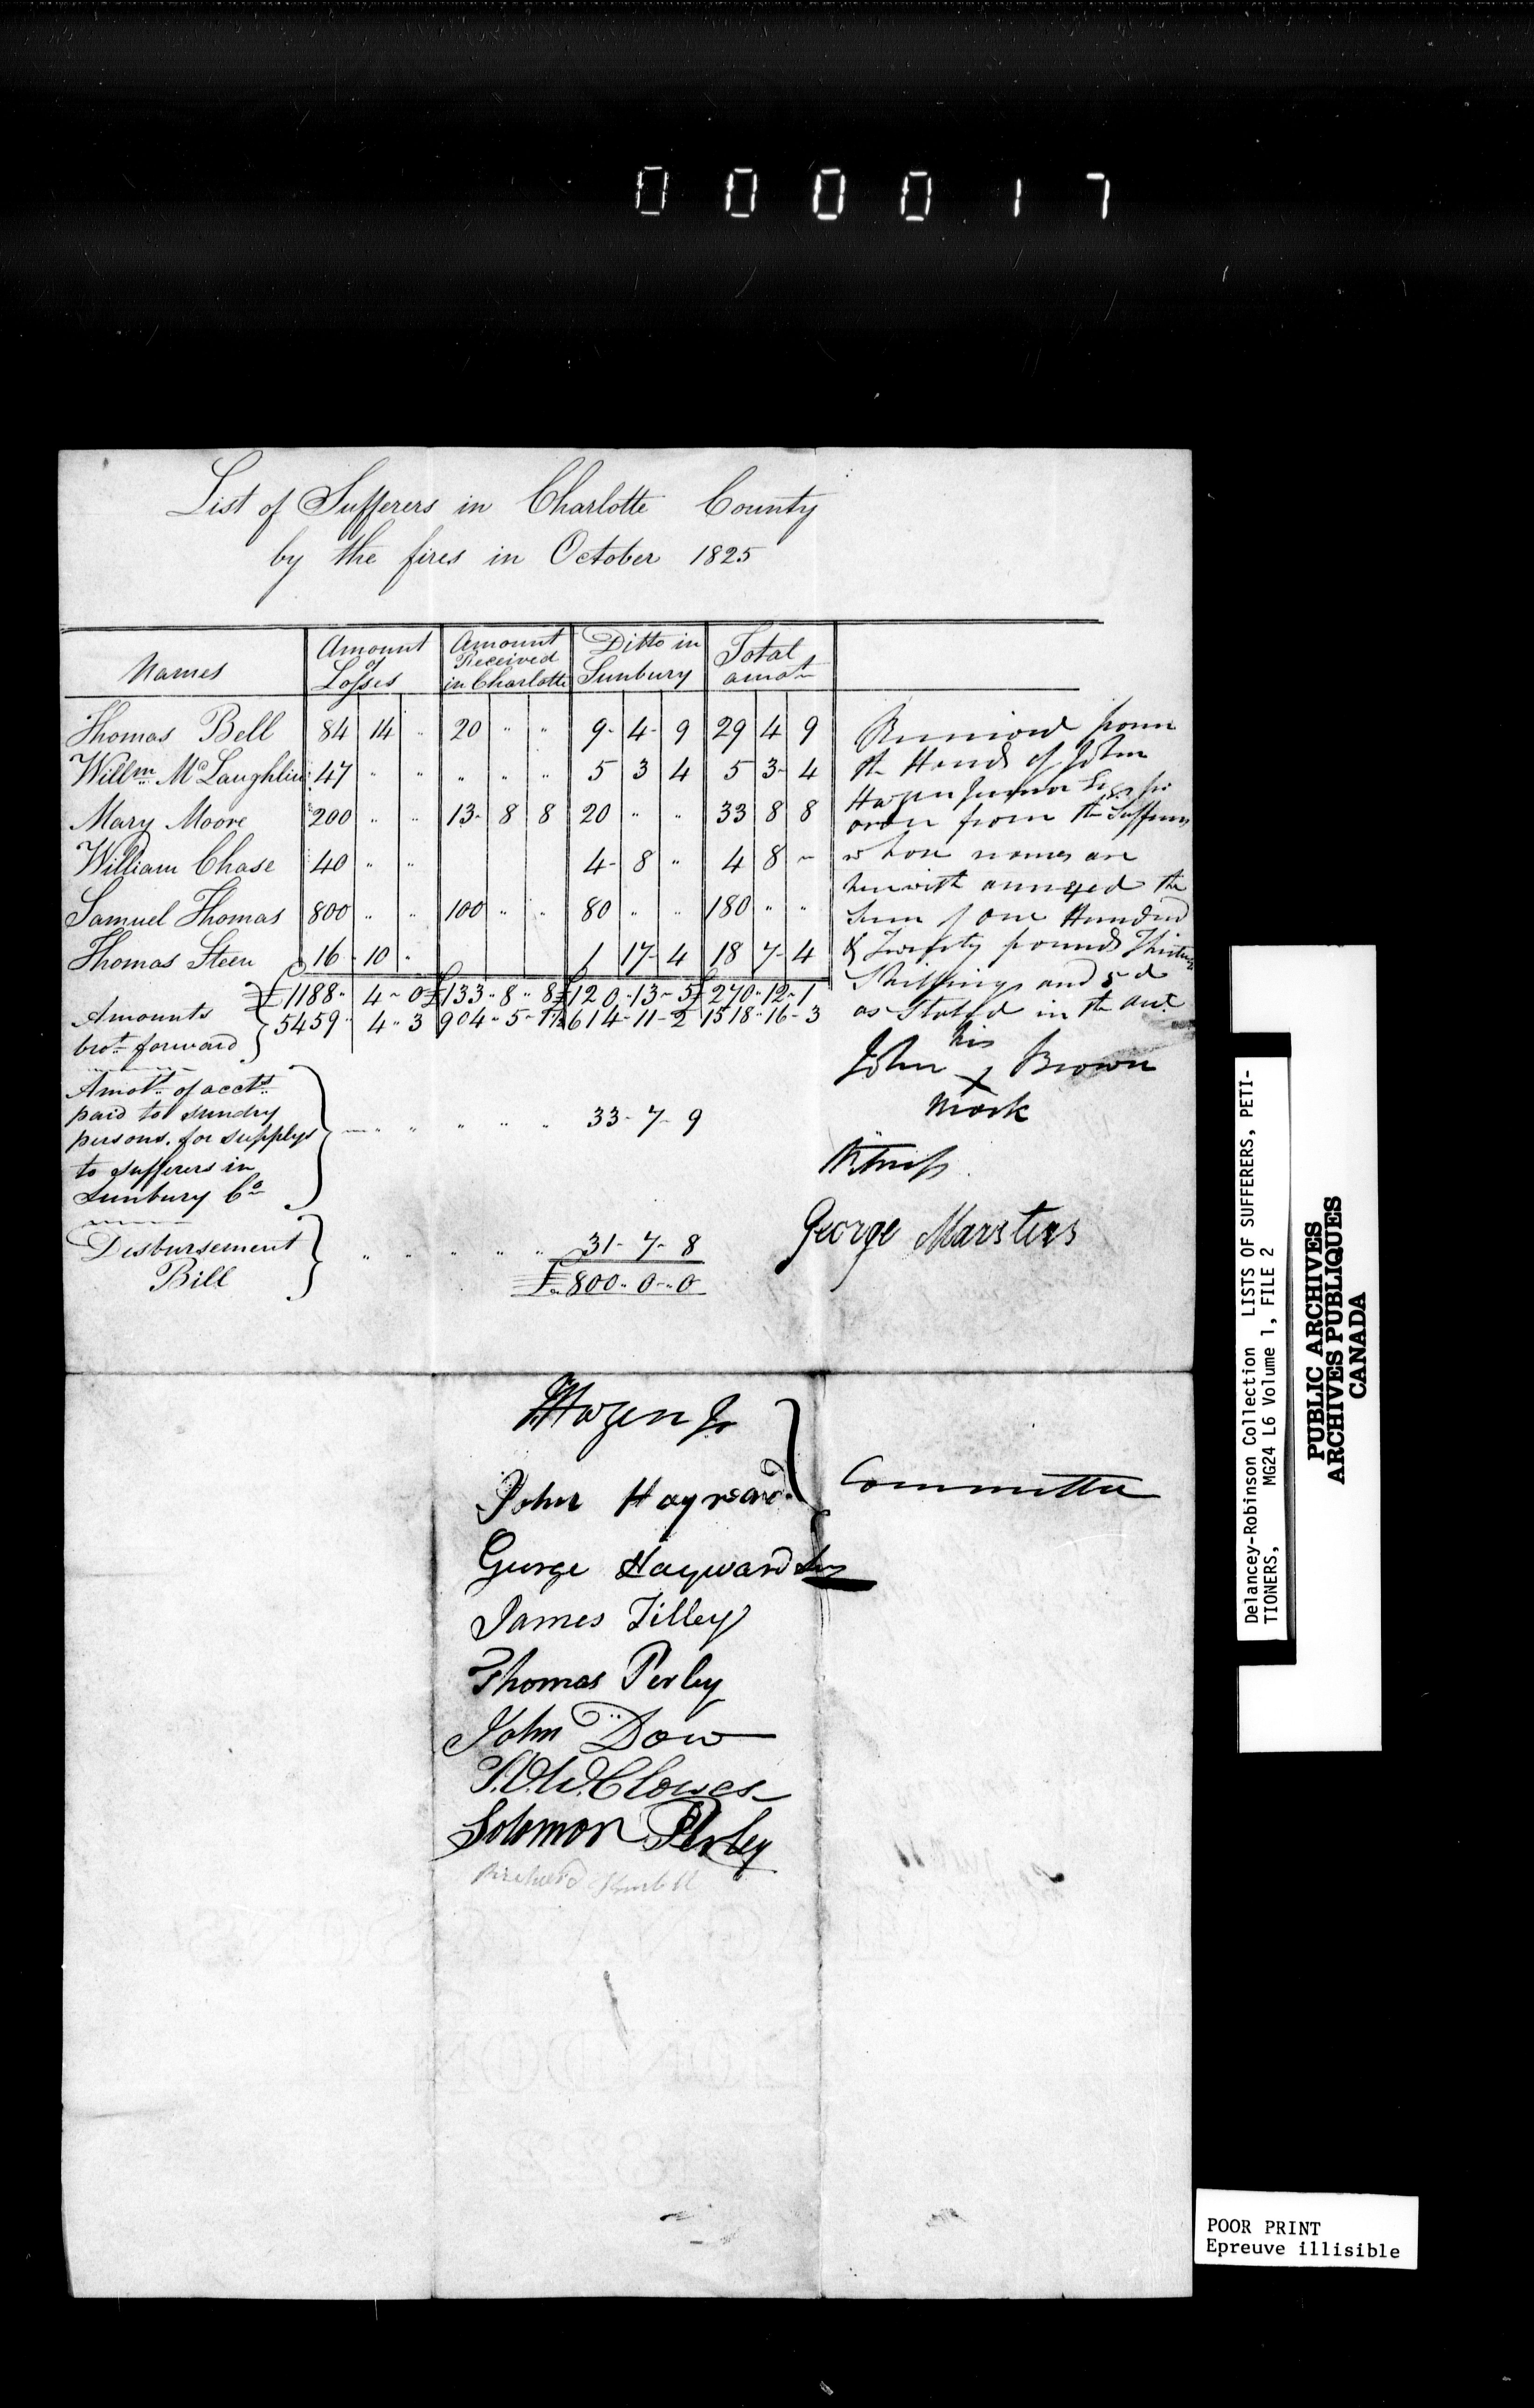 000017
List of Sufferers in Charlotte County
by the fires in October 1825
Names | Amount of Losses | Amount Received in Charlotte | Ditto in Sunbury | Total amot
Thomas Bell 84 14 " 20 " " 9- 4- 9 29 4 9
Willm McLaughlin 47 " " " " " 5 3 4 5 3- 4
Mary Moore 200 " " 13- 8 8 20 " " 33 8 8
William Chase 40 " " 4- 8 " 4 8 -
Samuel Thomas 800 " " 100 " " 80 " " 180 " "
Thomas Steen 16 10 " 1 17- 4 18 7- 4
£1188- 4- 0 £133 " 8 " 8 £120-13-5 £270-12-1
Amounts brot forward } 5459 " 4 " 3 904-5-7½ 614-11-2 1518-16-3
Amot of accts
paid to sundry
persons, for supplys } " " " " " 33- 7- 9
to sufferers in
Sunbury Co
Disbursement
Bill } " " " " " 31- 7- 8
£800 " 0 " 0
Received from
the Hands of John
Hazen Junior Esqr
order from the Sufferers
whose names are
herewith annexed the
Sum of one Hundred
& Twenty pounds Thirteen
Shillings and 5 d
as Stated in the
his
John X Brown
mark
Witness
George Marsters
Hazen Jr
John Hayward } Committee
George Hayward
James Tilley
Thomas Perley
John Dow
Clowes
Solomon Perley
Richard
LONDON
1822
Delancey-Robinson Collection LISTS OF SUFFERERS, PETI-
TIONERS, MG24 L6 Volume 1, FILE 2
PUBLIC ARCHIVES
ARCHIVES PUBLIQUES
CANADA
POOR PRINT
Epreuve illisible